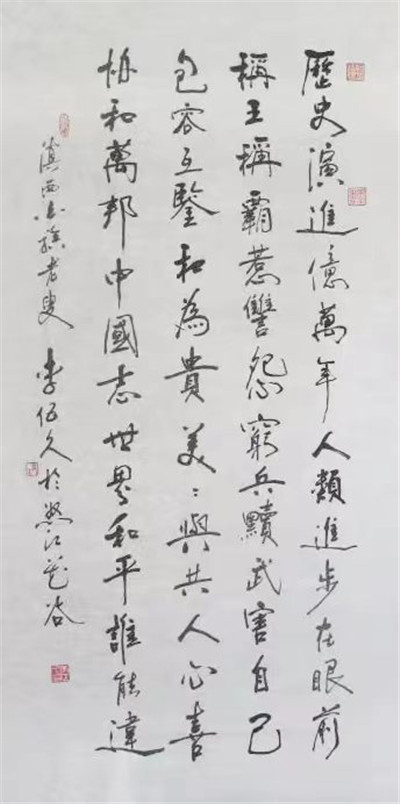 歷史演進億萬年人類進步在眼前
稱王稱霸惹讐怨窮兵黷武害自己
包容互鑒和為貴美〻與共人心喜
協和萬邦中國志世界和平誰能違
滇西白族老叟李伍久於怒江花谷